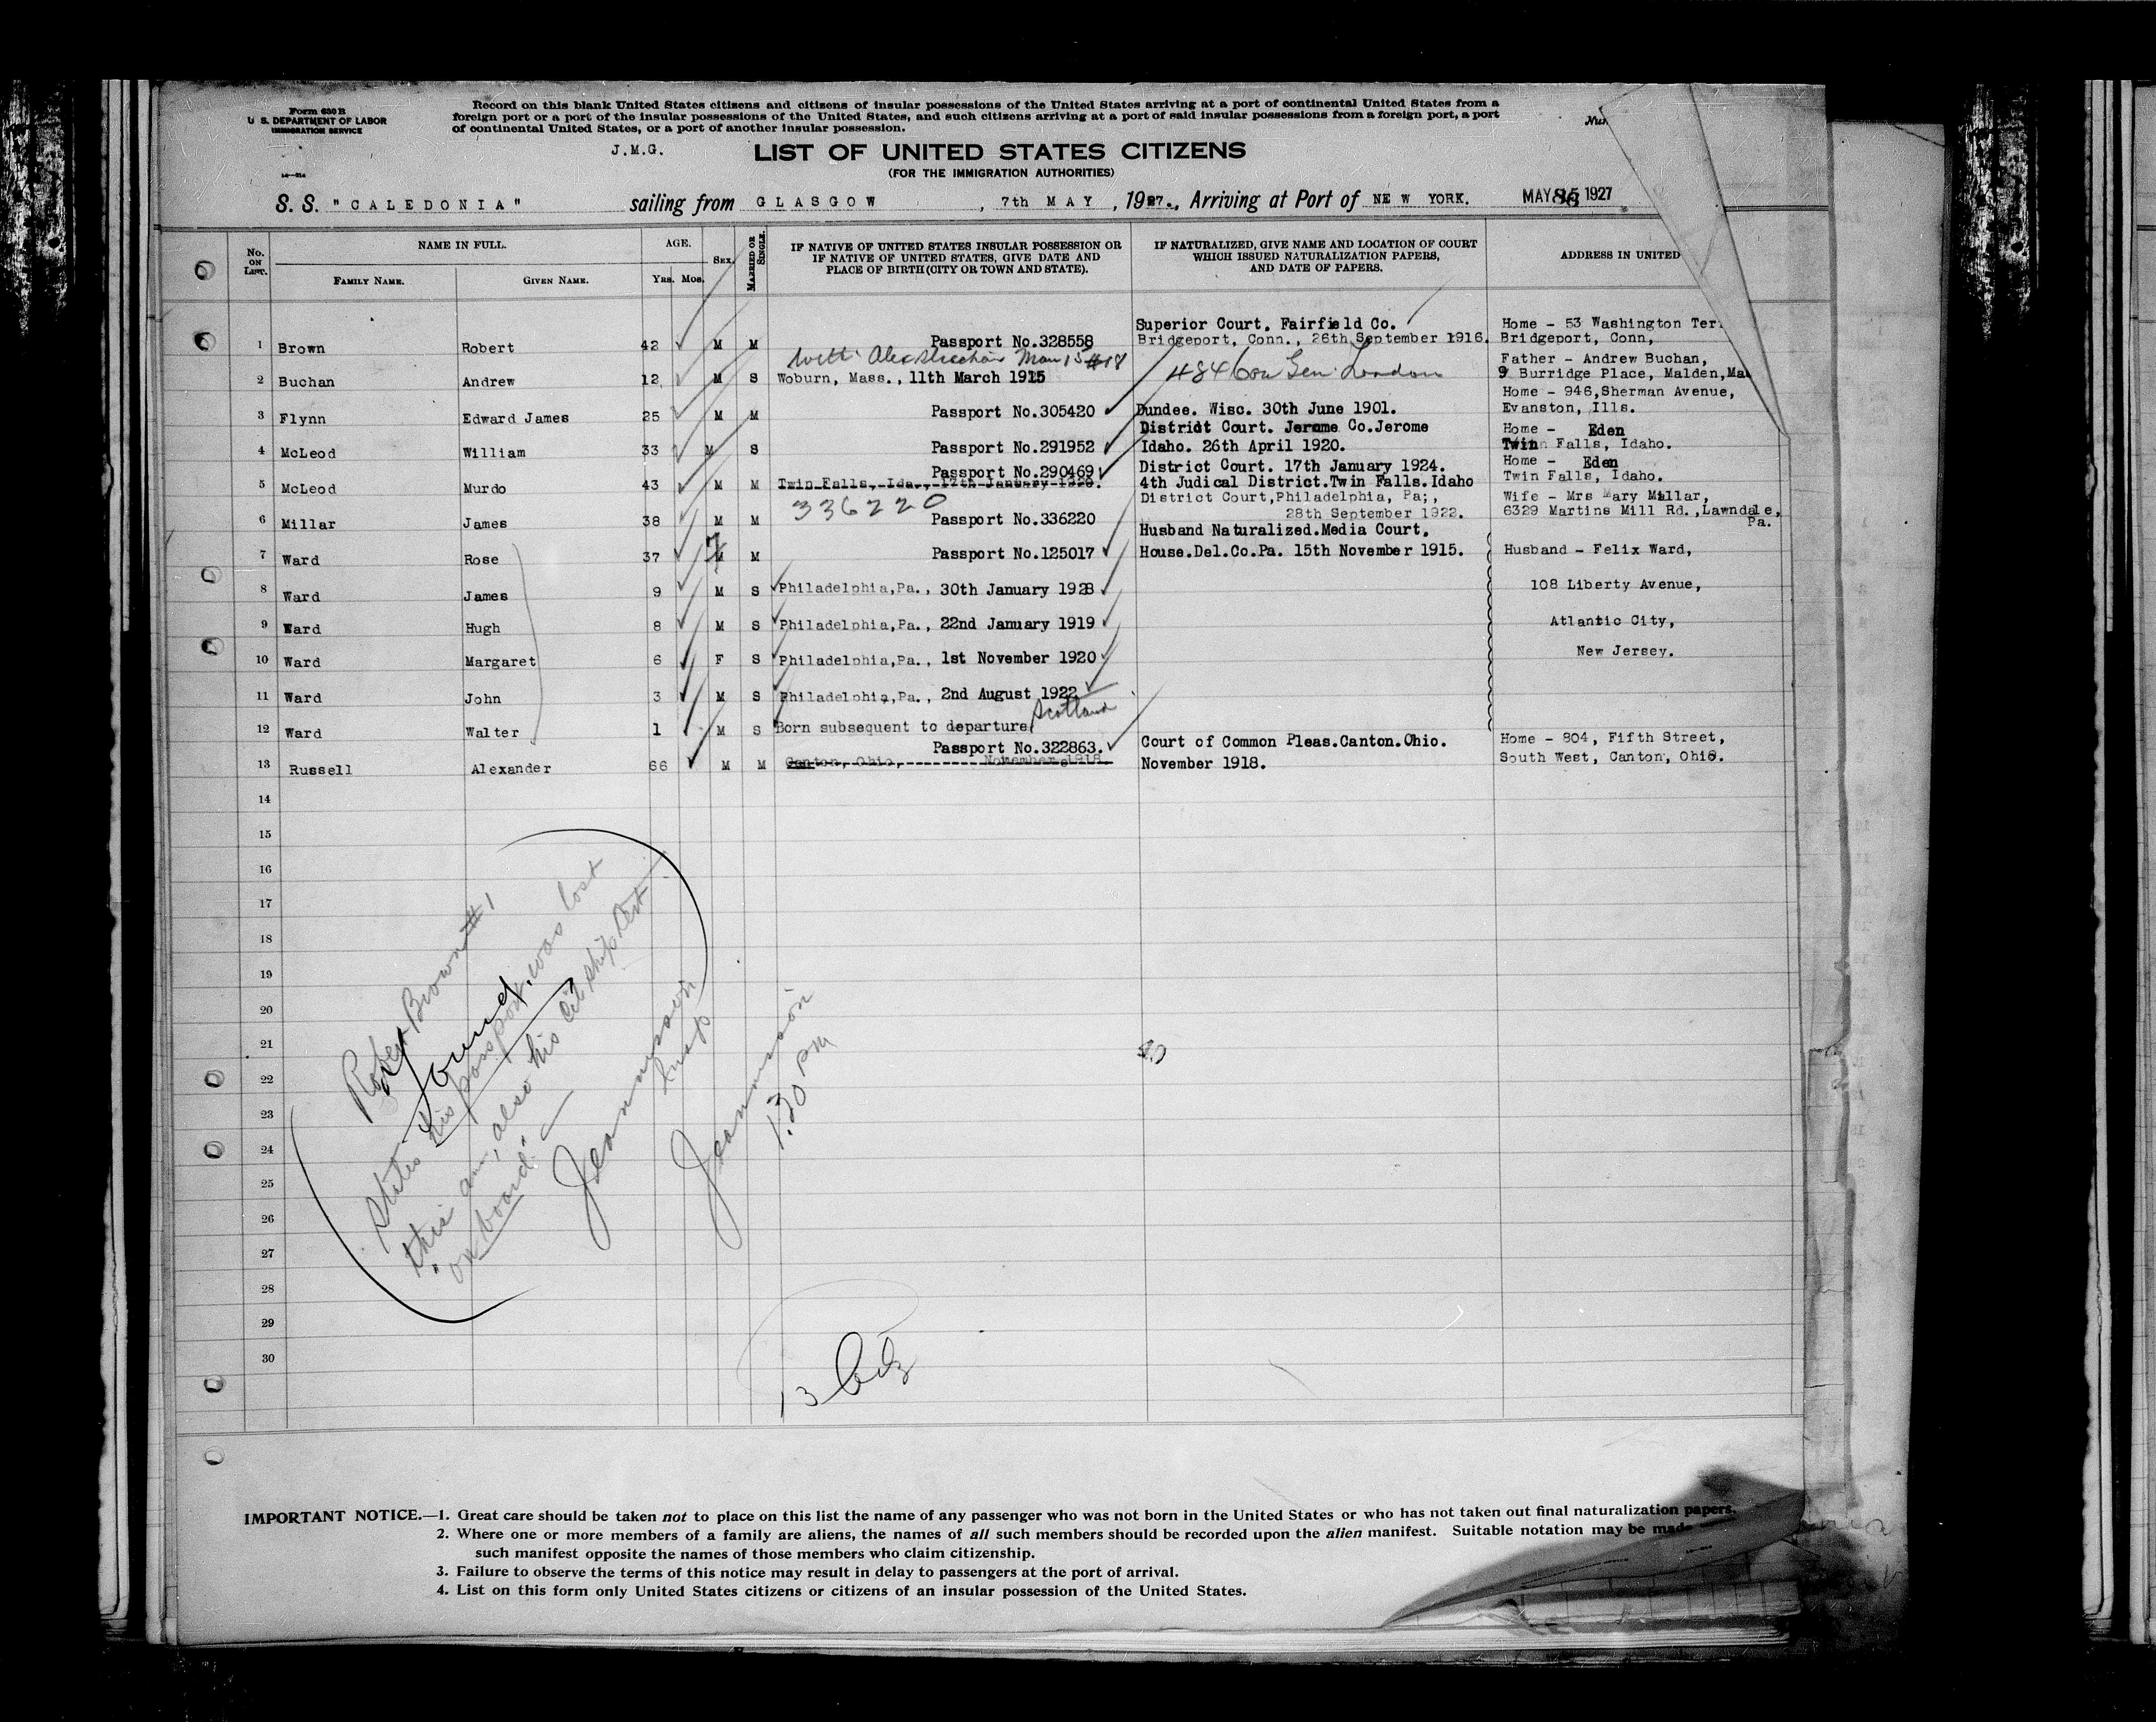 Form 630 B
U. S. DEPARTMENT OF LABOR
IMMIGRATION SERVICE
Record on this blank United States citizens and citizens of insular possessions of the United States arriving at a port of continental United States from a
foreign port or a port of the insular possessions of the United States, and such citizens arriving at a port of said insular possessions from a foreign port, a port
of continental United States, or a port of another insular possession.
J.M.G.
LIST OF UNITED STATES CITIZENS
(FOR THE IMMIGRATION AUTHORITIES)
S. S. "CALEDONIA" sailing from GLASGOW, 7th MAY, 1927., Arriving at Port of NEW YORK. MAY 1927
No. ON LIST. NAME IN FULL. AGE. SEX. MARRIED OR SINGLE. IF NATIVE OF UNITED STATES INSULAR POSSESSION OR IF NATIVE OF UNITED STATES, GIVE DATE AND PLACE OF BIRTH (CITY OR TOWN AND STATE). IF NATURALIZED, GIVE NAME AND LOCATION OF COURT WHICH ISSUED NATURALIZATION PAPERS, AND DATE OF PAPERS. ADDRESS IN UNITED
FAMILY NAME. GIVEN NAME. Yrs. Mos.
Superior Court. Fairfield Co. Home - 53 Washington Ter
1 Brown Robert 42 M M Passport No.328558 Bridgeport, Conn., 26th September 1916. Bridgeport, Conn,
Father - Andrew Buchan,
2 Buchan Andrew 12 M S Woburn, Mass., 11th March 1915 Gen London 9 Burridge Place, Malden, Ma
Home - 946, Sherman Avenue,
3 Flynn Edward James 25 M M Passport No.305420 Dundee. Wisc. 30th June 1901. Evanston, Ills.
District Court. Jerome Co. Jerome Home - Eden
4 McLeod William 33 M S Passport No.291952 Idaho. 26th April 1920. Twin Falls, Idaho.
Passport No.290469 District Court. 17th January 1924. Home - Eden
5 McLeod Murdo 43 M M Twin Falls, Ida., 17th January 1920. 4th Judical District. Twin Falls. Idaho Twin Falls, Idaho.
336220 District Court, Philadelphia, Pa;, Wife - Mrs Mary Millar,
6 Millar James 38 M M Passport No.336220 28th September 1922. 6329 Martins Mill Rd., Lawndale, Pa.
Husband Naturalized. Media Court.
7 Ward Rose 37 M M Passport No.125017 House. Del. Co. Pa. 15th November 1915. Husband - Felix Ward,
8 Ward James 9 M S Philadelphia, Pa., 30th January 1928 108 Liberty Avenue,
9 Ward Hugh 8 M S Philadelphia, Pa., 22nd January 1919 Atlantic City,
10 Ward Margaret 6 F S Philadelphia, Pa., 1st November 1920 New Jersey.
11 Ward John 3 M S Philadelphia, Pa., 2nd August 1922
12 Ward Walter 1 M S Born subsequent to departure Scotland
Passport No.322863. Court of Common Pleas. Canton. Ohio. Home - 804, Fifth Street,
13 Russell Alexander 66 M M Canton, Ohio, November 1918. November 1918. South West, Canton, Ohio.
14
15
16
17
18
19
20
21
22
23
24
25
26
27
28
29
30
Robert Brown #1
found
States his passport was lost
this am, also his cit ship
on board.
Jeanmson
Insp
Jeanmson
1.30 PM
13
IMPORTANT NOTICE.—1. Great care should be taken not to place on this list the name of any passenger who was not born in the United States or who has not taken out final naturalization papers.
2. Where one or more members of a family are aliens, the names of all such members should be recorded upon the alien manifest. Suitable notation may be made
such manifest opposite the names of those members who claim citizenship.
3. Failure to observe the terms of this notice may result in delay to passengers at the port of arrival.
4. List on this form only United States citizens or citizens of an insular possession of the United States.